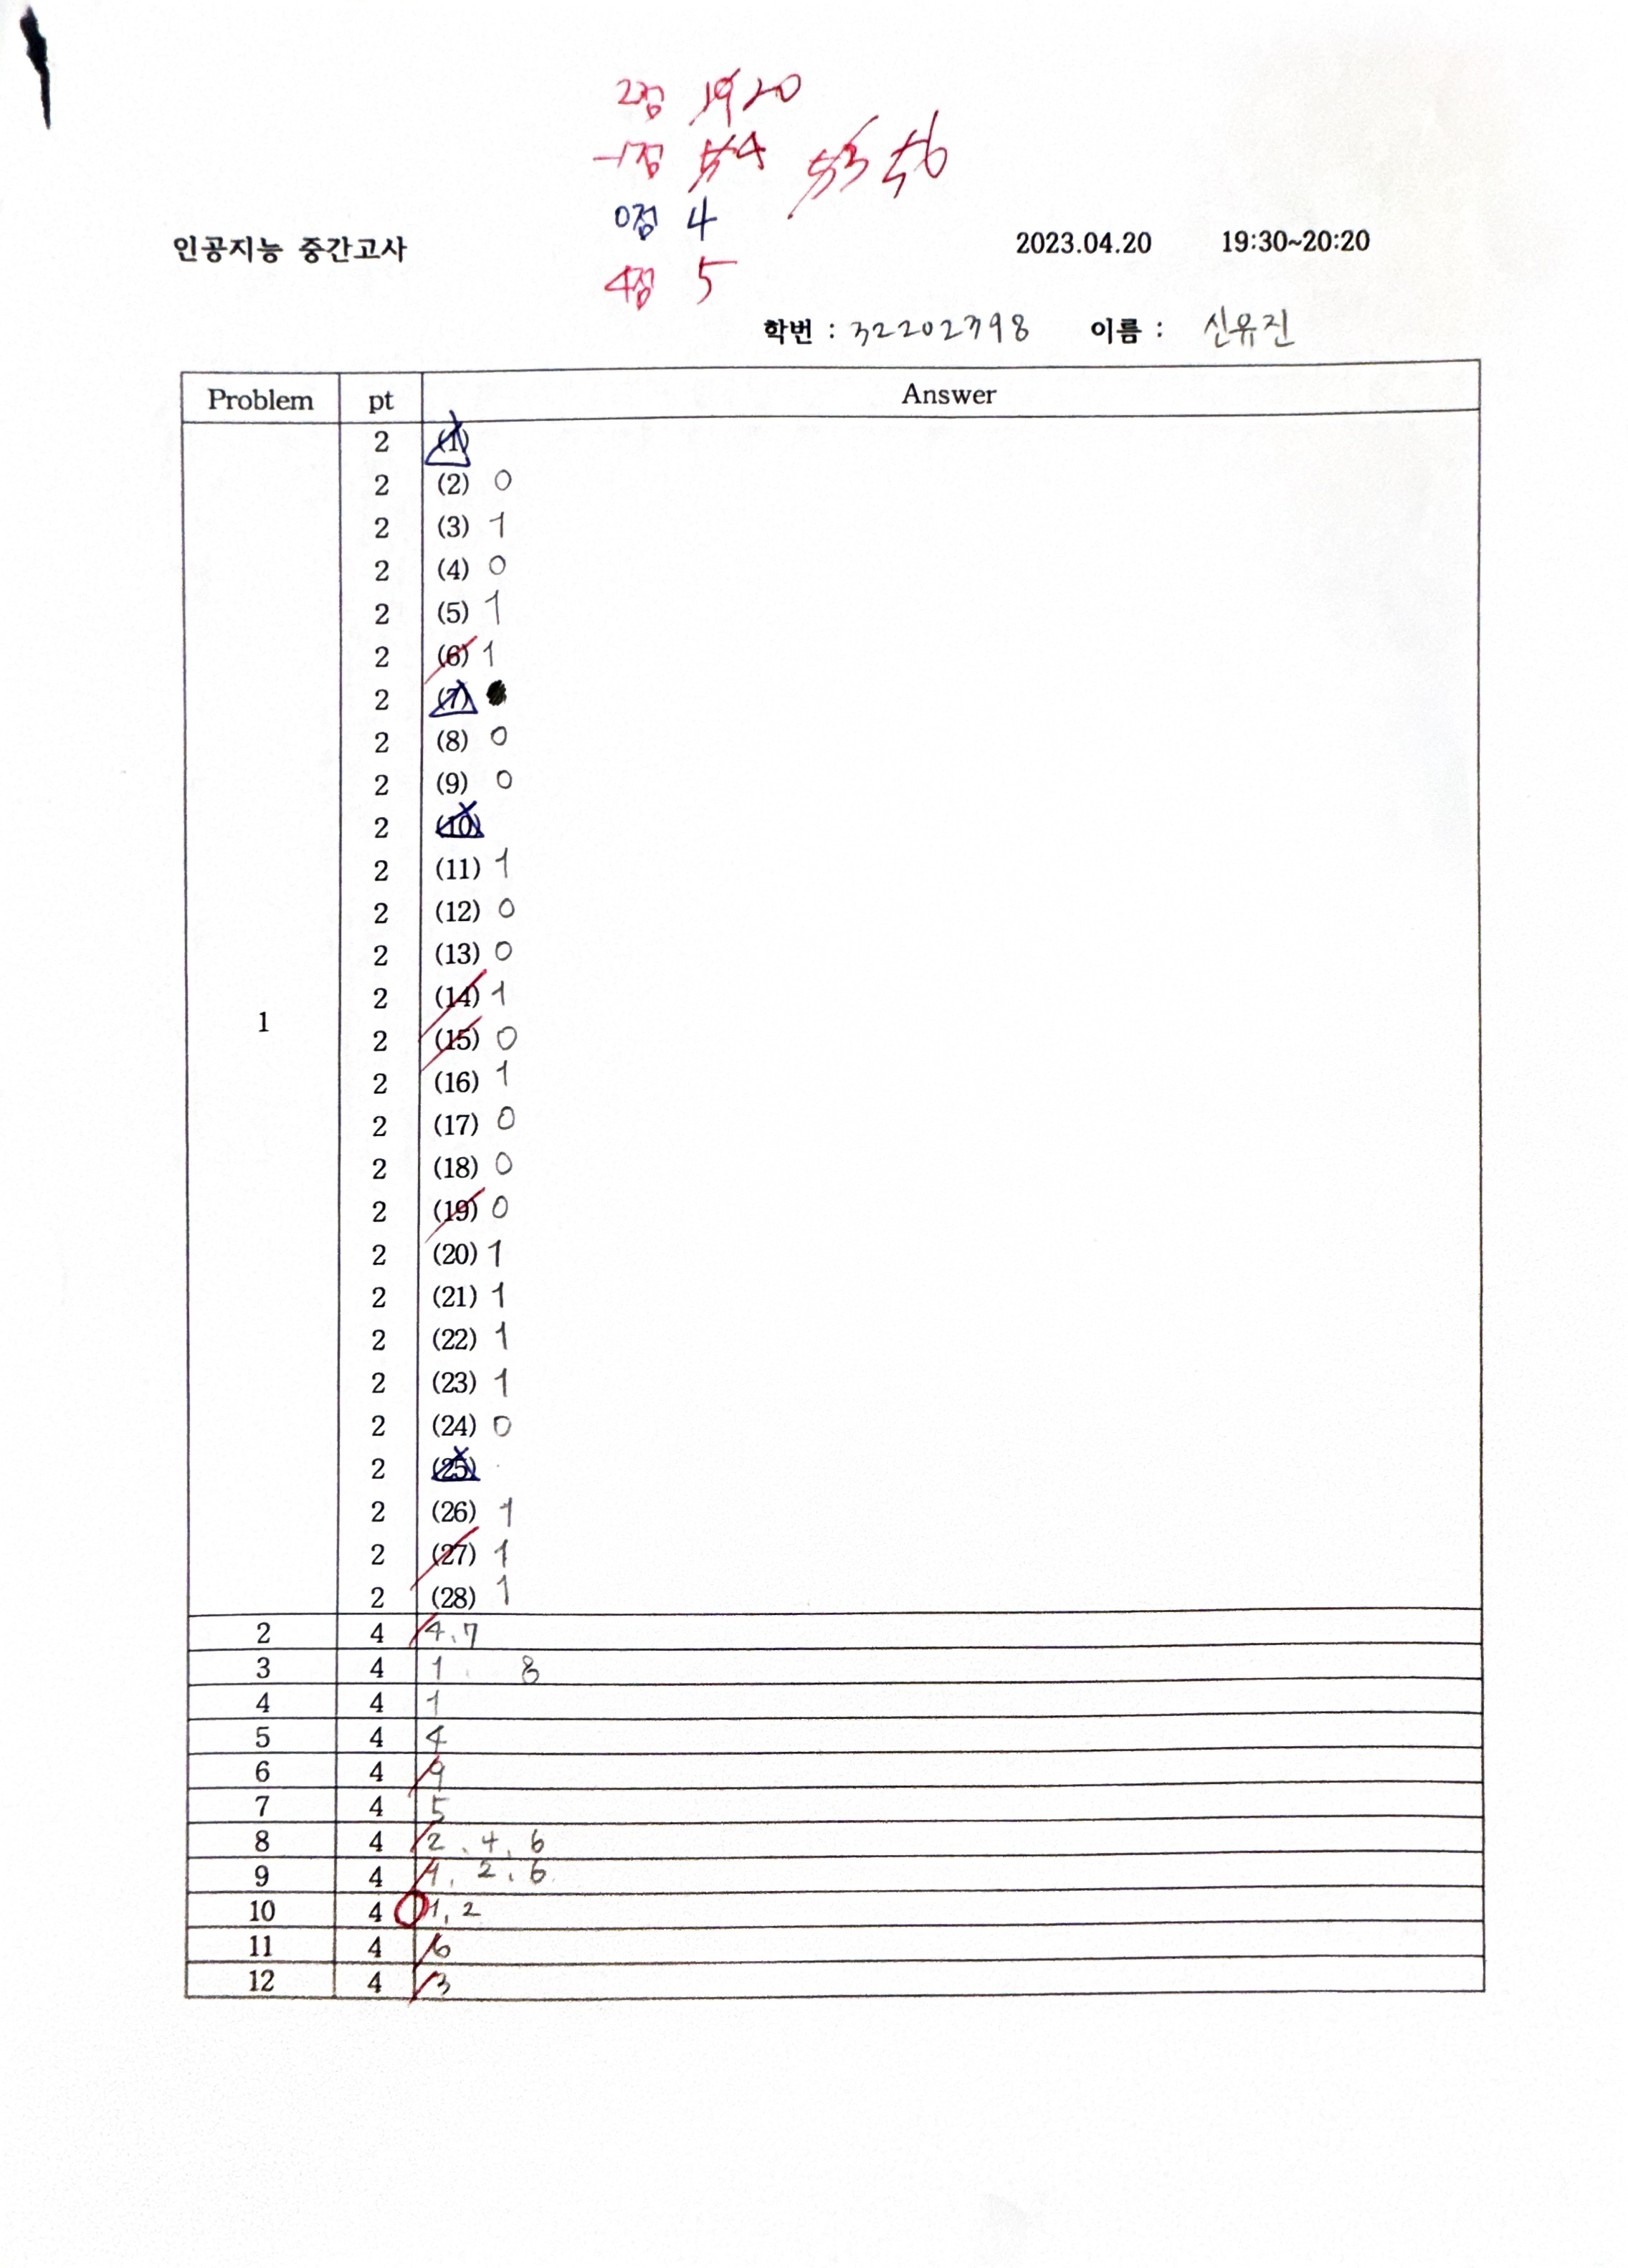 2점 19 20
-1점 5 4 53 56
0점 4
4점 5
인공지능 중간고사 2023.04.20 19:30~20:20
학번 : 32202798 이름 : 신유진
Problem pt Answer
2 (1)
2 (2) 0
2 (3) 1
2 (4) 0
2 (5) 1
2 (6) 1
2 (7)
2 (8) 0
2 (9) 0
2 (10)
2 (11) 1
2 (12) 0
2 (13) 0
2 (14) 1
1
2 (15) 0
2 (16) 1
2 (17) 0
2 (18) 0
2 (19) 0
2 (20) 1
2 (21) 1
2 (22) 1
2 (23) 1
2 (24) 0
2 (25)
2 (26) 1
2 (27) 1
2 (28) 1
2 4 4, 7
3 4 1. 8
4 4 1
5 4 4
6 4 9
7 4 5
8 4 2, 4, 6
9 4 4, 2, 6
10 4 1, 2
11 4 6
12 4 3